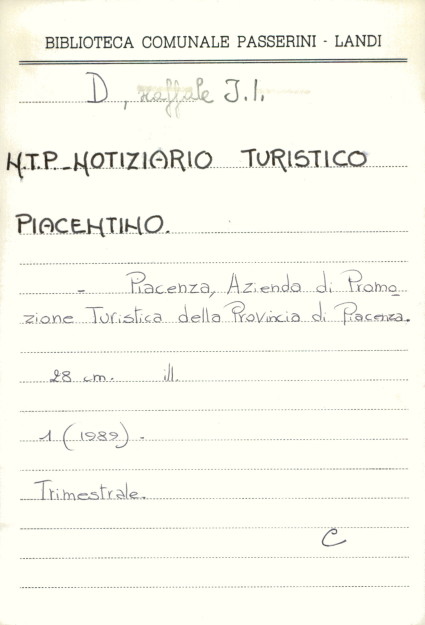 BIBLIOTECA COMUNALE PASSERINI - LANDI
D, scaffale I.1.
N.T.P. - NOTIZIARIO TURISTICO
PIACENTINO.
- Piacenza, Azienda di Promo-
zione Turistica della Provincia di Piacenza.
28 cm. ill.
1 (1989) -
Trimestrale.
C